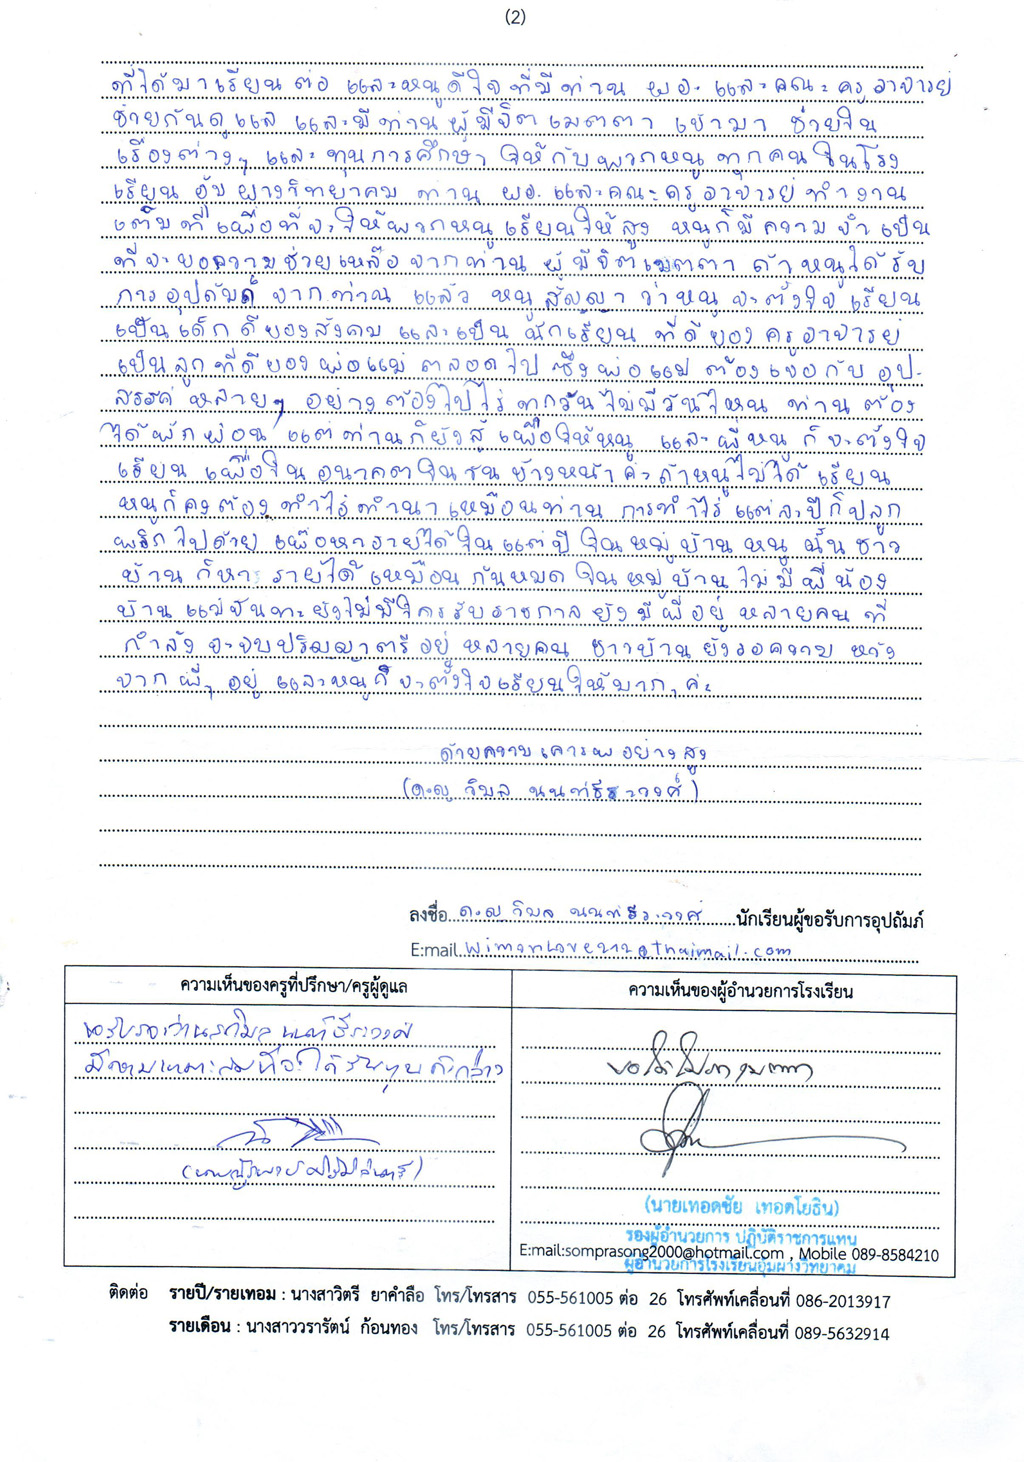 (2)
ที่ได้มาเรียนต่อ และหนูดีใจที่มีท่าน ผอ. และคณะครูอาจารย์
ช่วยกันดูแล และมีท่านผู้มีจิตเมตตา เข้ามา ช่วยใน
เรื่องต่างๆ และทุนการศึกษา ให้กับพวกหนูทุกคนในโรง
เรียน อุ้มผางวิทยาคม ท่าน ผอ. และคณะครูอาจารย์ทำงาน
เต็มที่เพื่อที่จะให้พวกหนูเรียนให้สูง หนูก็มีความจำเป็น
ที่จะขอความช่วยเหลือจากท่าน ผู้มีจิตเมตตา ถ้าหนูได้รับ
การอุปถัมภ์ จากท่าน แล้ว หนูสัญญา ว่าหนูจะตั้งใจเรียน
เป็นเด็กดีของสังคม และเป็น นักเรียน ที่ดีของ ครูอาจารย์
เป็นลูกที่ดีของพ่อแม่ ตลอดไป ซึ่งพ่อแม่ ต้องเจอกับ อุป-
สรรค์ หลายๆ อย่าง ต้องไปไร่ ทุกวันไม่มีวันไหน ท่านต้อง
ได้พักผ่อน แต่ท่านก็ยังสู้เพื่อให้หนู และพี่หนู ก็จะตั้งใจ
เรียน เพื่อใน อนาคตใน ข้างหน้า ค่ะ ถ้าหนูไม่ได้ เรียน
หนูก็คงต้อง ทำไร่ทำนา เหมือนท่าน การทำไร่ แต่ละปีก็ปลูก
พริกไปด้วย เพื่อหารายได้ในแต่ปี ในหมู่บ้านหนู นั้นชาว
บ้าน ก็หา รายได้ เหมือนกันหมด ในหมู่บ้าน ไม่มีพี่น้อง
บ้านแม่จันทะยังไม่มีใครรับราชกาล ยังมีพี่อยู่ หลายคน ที่
กำลัง จะจบปริญญาตรี อยู่ หลายคน ชาวบ้าน ยังรอความ หวัง
จาก พี่ๆ อยู่ และหนูก็จะตั้งใจเรียนให้มากๆ ค่ะ
ด้วยความเคารพอย่างสูง
(ด.ญ วิมล นนท์ธีระวงศ์)
ลงชื่อ ด.ญ วิมล นนท์ธีระวงศ์ นักเรียนผู้ขอรับการอุปถัมภ์
E:mail. wimonlove212@thaimail.com
ความเห็นของครูที่ปรึกษา/ครูผู้ดูแล
ความเห็นของผู้อำนวยการโรงเรียน
ขอรับรองว่า วิมล นนท์ธีระวงศ์
มีความเหมาะสมที่จะได้รับทุนดังกล่าว
(นายเทอดชัย เทอดโยธิน)
รองผู้อำนวยการ ปฏิบัติราชการแทน
E:mail:somprasong2000@hotmail.com , Mobile 089-8584210
ผู้อำนวยการโรงเรียนอุ้มผางวิทยาคม
ติดต่อ รายปี/รายเทอม : นางสาวิตรี ยาคำลือ โทร/โทรสาร 055-561005 ต่อ 26 โทรศัพท์เคลื่อนที่ 086-2013917
รายเดือน : นางสาววรารัตน์ ก้อนทอง โทร/โทรสาร 055-561005 ต่อ 26 โทรศัพท์เคลื่อนที่ 089-5632914